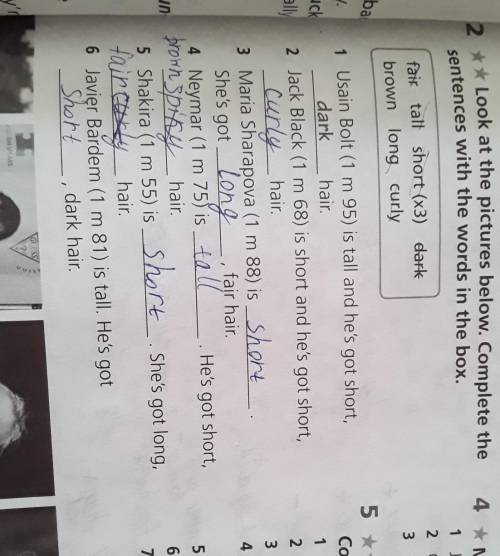 2 ★★ Look at the pictures below. Complete the
sentences with the words in the box.
fair tall short (x3) dark
brown long curly
1 Usain Bolt (1 m 95) is tall and he's got short,
dark hair.
2 Jack Black (1 m 68) is short and he's got short,
curly hair.
3 Maria Sharapova (1 m 88) is short.
She's got long, fair hair.
4 Neymar (1 m 75) is tall. He's got short,
brown spiky hair.
5 Shakira (1 m 55) is short. She's got long,
fair curly hair.
6 Javier Bardem (1 m 81) is tall. He's got
Short, dark hair.
4 ★
1
2
3
5 ★
Co
1
2
3
4
5
6
7